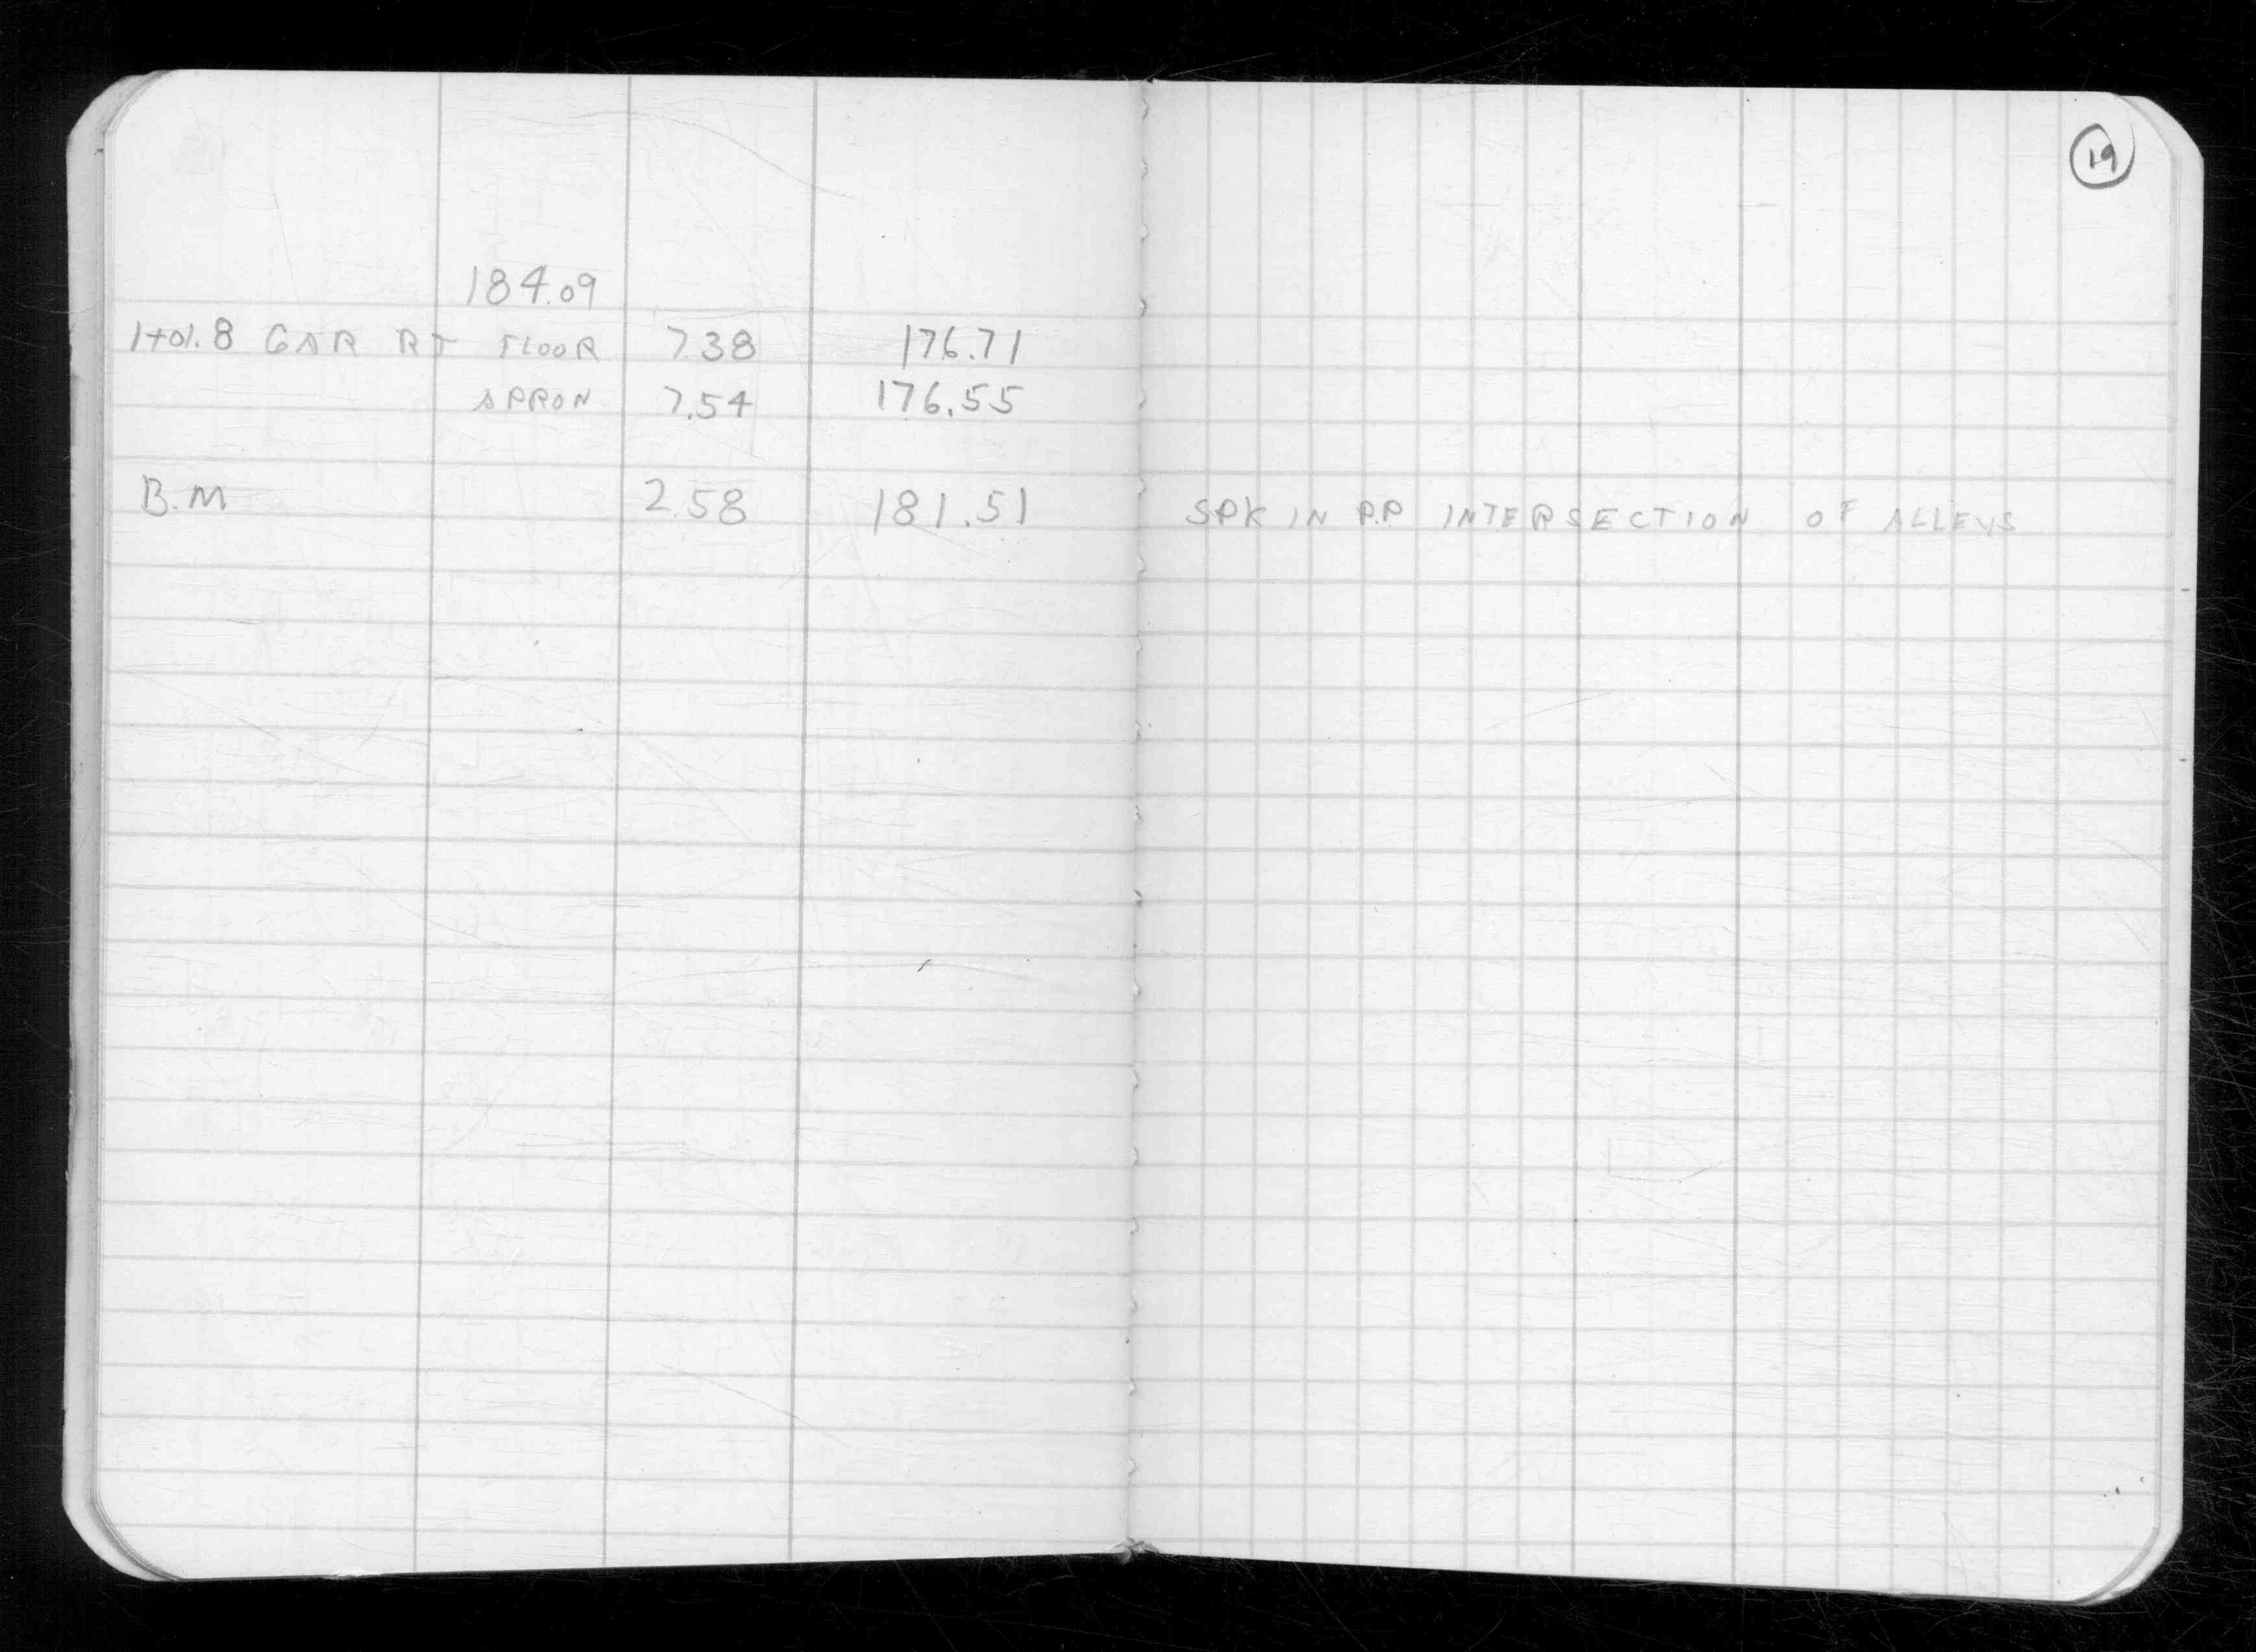 19
184.09
1+01.8 GAR RT FLOOR 7.38 176.71
APRON 7.54 176.55
B.M 2.58 181.51 SPK IN P.P INTERSECTION OF ALLEYS